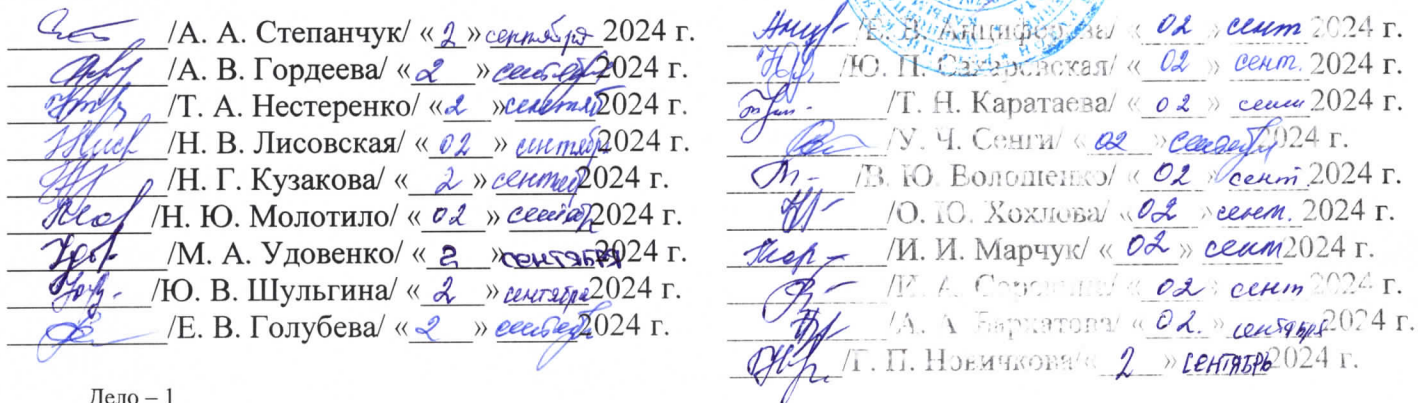 /А. А. Степанчук/ «2» сентября 2024 г.
/А. В. Гордеева/ «2» сентября 2024 г.
/Т. А. Нестеренко/ «2» 2024 г.
/Н. В. Лисовская/ «02» сентября 2024 г.
/Н. Г. Кузакова/ «2» 2024 г.
/Н. Ю. Молотило/ «02» 2024 г.
/М. А. Удовенко/ «2» сентября 2024 г.
/Ю. В. Шульгина/ «2» сентября 2024 г.
/Е. В. Голубева/ «2» сентября 2024 г.
Дело – 1
/Е. В. Анциферова/ «02» сент 2024 г.
/Ю. П. Сахаровская/ «02» сент. 2024 г.
/Т. Н. Каратаева/ «02» сент 2024 г.
/У. Ч. Сенги/ «02» сентября 2024 г.
/В. Ю. Волошенко/ «02» сент. 2024 г.
/О. Ю. Хохлова/ «02» сент. 2024 г.
/И. И. Марчук/ «02» сент 2024 г.
/И. А. «02» сент 2024 г.
/А. А. Бархатова/ «02» сентября 2024 г.
/Г. П. Новичкова/ «2» сентябрь 2024 г.